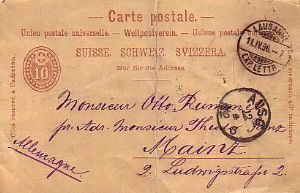 Carte postale.
Union postale universelle. — Weltpostverein. — Unione postale universale.
SUISSE. SCHWEIZ. SVIZZERA.
Nur für die Adresse.
10
LAUSANNE
EXP. LETTR.
AUSG
Monsieur Otto
per Adr. Monsieur
Mainz
2. Ludwigstraße 2.
Allemagne